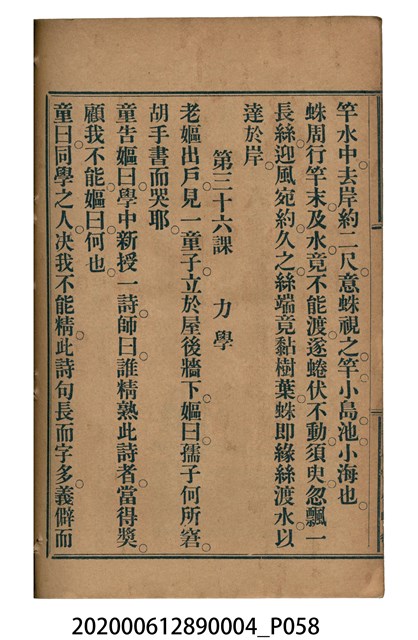 竿水中去岸約二尺意蛛視之竿小島池小海也。
蛛周行竿末及水竟不能渡遂蜷伏不動須臾忽飄一
長絲迎風宛約久之絲端竟黏樹葉蛛即緣絲渡水以
達於岸。
第三十六課　力學
老嫗出戶見一童子立於屋後牆下嫗曰孺子何所窘。
胡手書而哭耶。
童告嫗曰學中新授一詩師曰誰精熟此詩者當得獎。
顧我不能嫗曰何也。
童曰同學之人決我不能精此詩句長而字多義僻而
202000612890004_P058